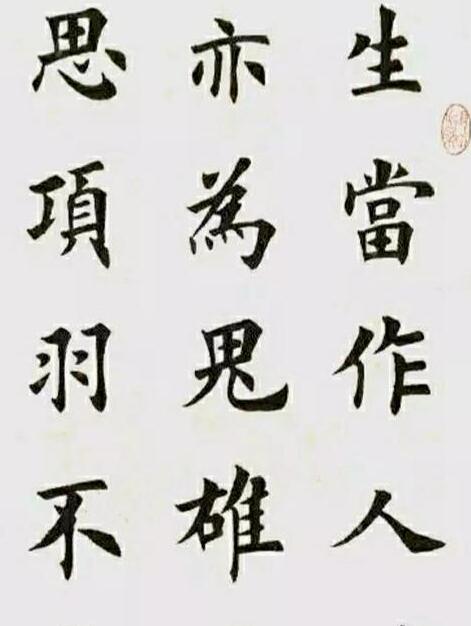 生當作人
亦為鬼雄
思項羽不